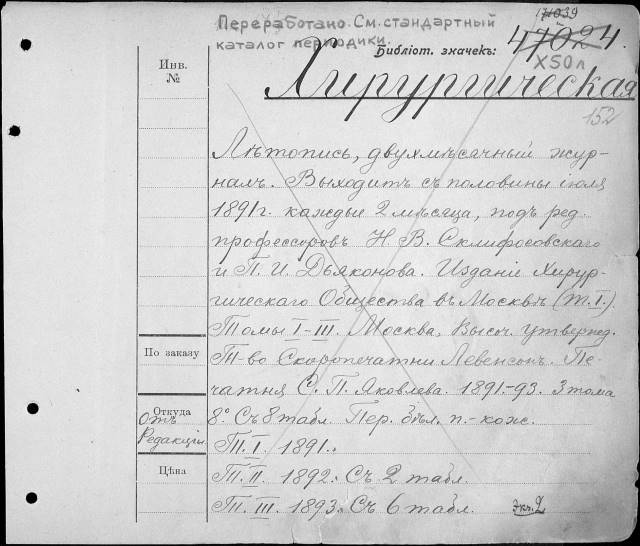 17039
Переработано. См. стандартный
каталог периодики.
Библіот. значекъ: 47024.
X50л
Инв.
№
Хирургическая
152
Лѣтопись, двухмѣсячный жур-
налъ. Выходитъ съ половины іюля
1891 г. каждые 2 мѣсяца, подъ ред.
профессоровъ Н. В. Склифосовскаго
и П. И. Дьяконова. Изданіе Хирур-
гическаго Общества въ Москвѣ (т. I.).
Томы I-III. Москва, Высоч. утвержд.
По заказу
Т-во Скоропечатни Левенсонъ. Пе-
чатня С. П. Яковлева. 1891-93. 3 тома
Откуда
Отъ
Редакціи
8° Съ 8 табл. Пер. бѣл. п.-кож.
Т. I. 1891.
Цѣна
Т. II. 1892. Съ 2 табл.
Т. III. 1893. Съ 6 табл.
Экз. 2